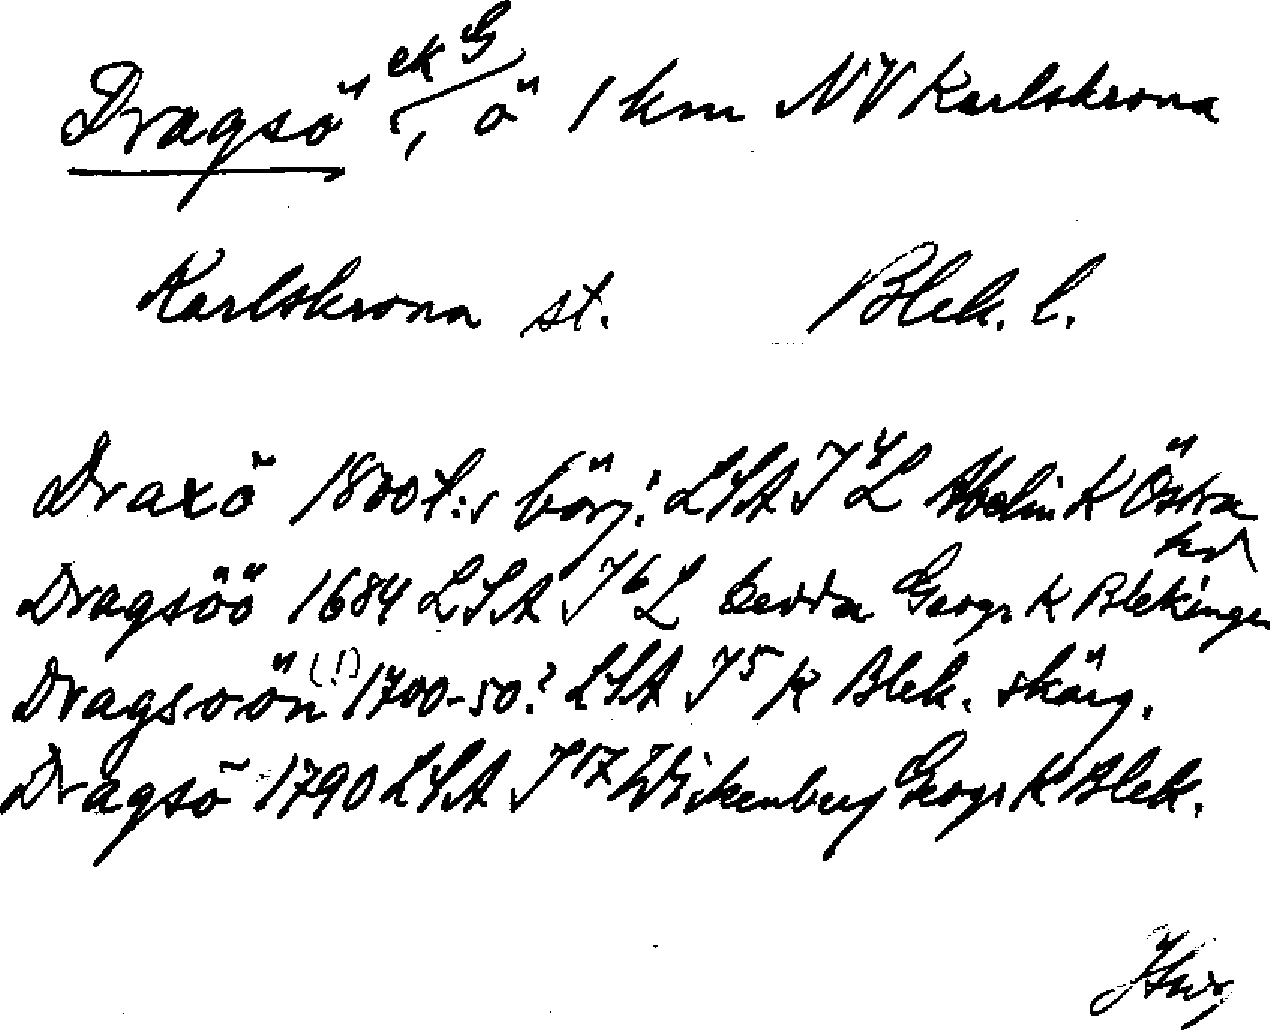 Dragsö ek G, ö 1 km NV Karlskrona
Karlskrona st. Blek. l.
Draxö 1800 t:s börj. LSA I 4 L Abelin K Östra hd
Dragsöö 1684 LSA I 6 L Gedda Geogr K Blekingen
Dragsöön (!) 1700-50? LSA I 5 K Blek. skärg.
Dragsö 1790 LSA I 17 Wickenberg Geogr K Blek.